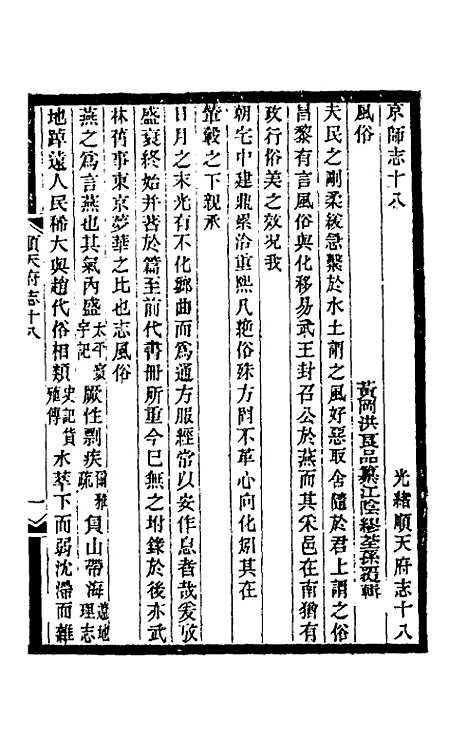 京師志十八　光緒順天府志十八
風俗　黃岡洪良品纂江陰繆荃孫覆輯
夫民之剛柔緩急繫於水土謂之風好惡取舍隨於君上謂之俗
昌黎有言風俗與化移易武王封召公於燕而其宋邑在南猶有
政行俗美之效況我
朝宅中建鼎累洽重熙凡絶俗殊方罔不革心向化矧其在
輦轂之下親承
日月之末光有不化鄉曲而爲通方服經常以安作息者哉爰攷
盛衰終始并著於篇至前代書冊所重今已無之坿錄於後亦武
林舊事東京夢華之比也志風俗
燕之爲言燕也其氣內盛太平寰宇記厥性剽疾爾雅疏負山帶海遼地理志
地踔遠人民稀大與趙代俗相類史記貨殖傳水萃下而弱沈滯而雜
順天府志十八　一